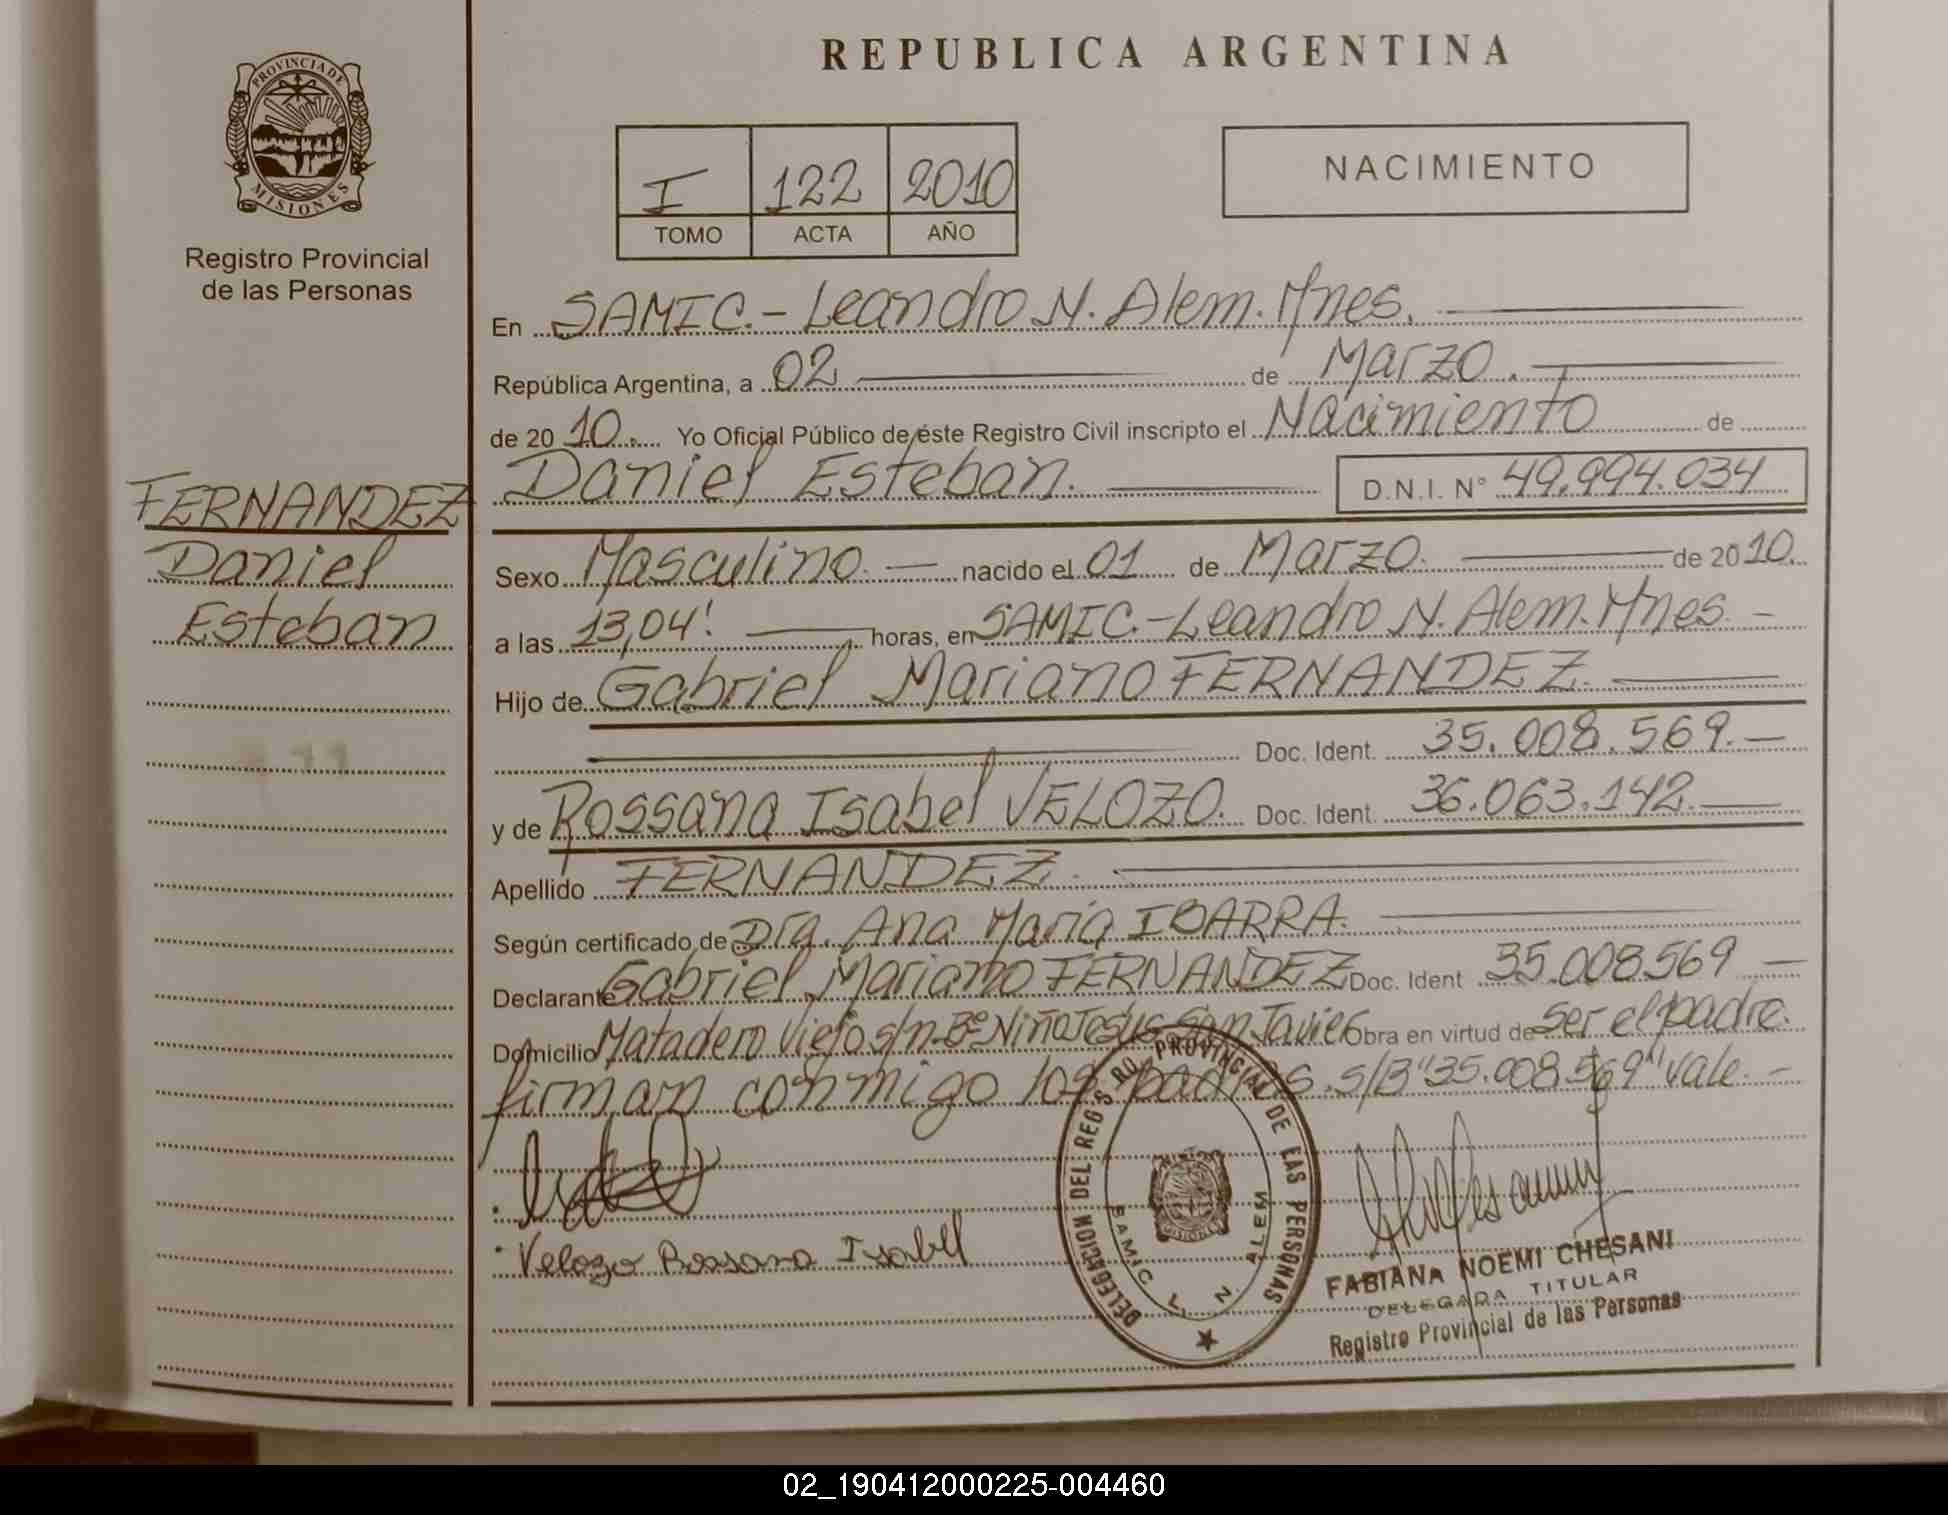 REPUBLICA ARGENTINA
PROVINCIA DE
MISIONES
Registro Provincial
de las Personas
I 122 2010
TOMO ACTA AÑO
NACIMIENTO
En SAMIC.- Leandro N. Alem. Mnes.
República Argentina, a 02 de Marzo.
de 20 10. Yo Oficial Público de éste Registro Civil inscripto el Nacimiento de
Daniel Esteban. D.N.I. N° 49.994.034
FERNANDEZ
Daniel
Esteban
Sexo Masculino. — nacido el 01 de Marzo. de 2010.
a las 13,04'. horas, en SAMIC.-Leandro N. Alem. Mnes. -
Hijo de Gabriel Mariano FERNANDEZ.
Doc. Ident. 35.008.569.—
y de Rossana Isabel VELOZO. Doc. Ident. 36.063.142.
Apellido FERNANDEZ.
Según certificado de Dra. Ana María IBARRA.
Declarante Gabriel Mariano FERNANDEZ Doc. Ident 35.008569 —
Domicilio Matadero Viejo s/n.Bº Niño Jesus San Javier Obra en virtud de ser el padre.
firman conmigo los padres. S/B "35.008.569" Vale. -
Velozo Rossana Isabell
DELEGACION DEL REGISTRO PROVINCIAL DE LAS PERSONAS
SAMIC L. N. ALEM
MISIONES
FABIANA NOEMI CHESANI
DELEGADA TITULAR
Registro Provincial de las Personas
02_190412000225-004460